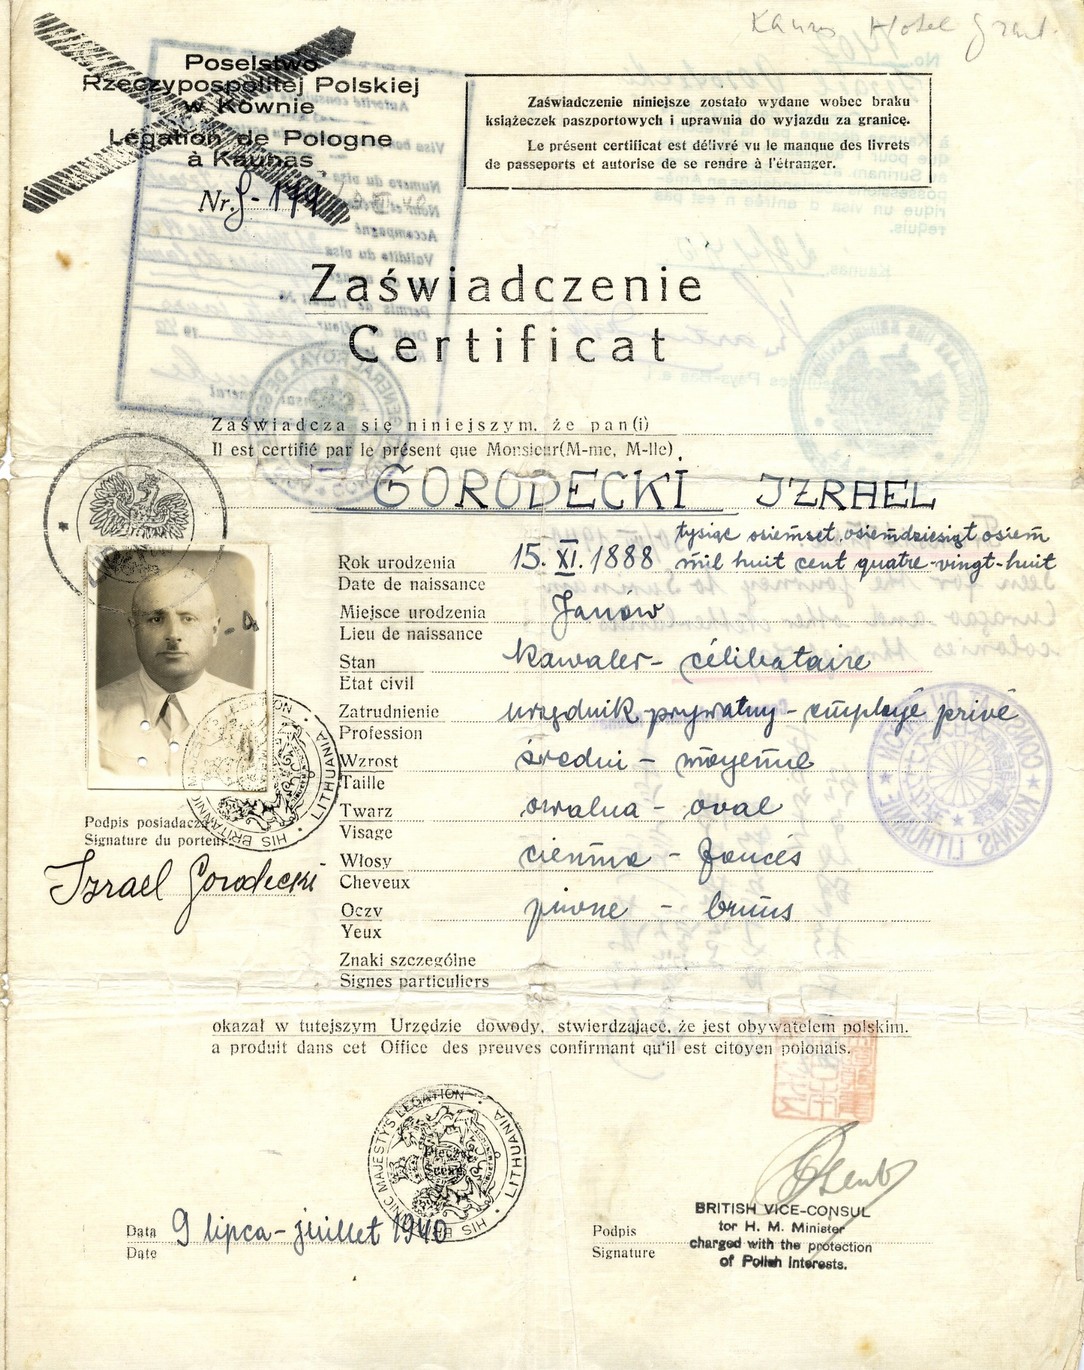 Kaunas Hotel
Poselstwo
Rzeczypospolitej Polskiej
w Kownie
Légation de Pologne
à Kaunas
Nr.
Zaświadczenie niniejsze zostało wydane wobec braku
książeczek paszportowych i uprawnia do wyjazdu za granicę.
Le présent certificat est délivré vu le manque des livrets
de passeports et autorise de se rendre à l'étranger.
Zaświadczenie
Certificat
Zaświadcza się niniejszym, że pan(i)
Il est certifié par le présent que Monsieur(M-me, M-lle)
GORODECKI IZRAEL
tysiąc osiemset osiemdziesiąt osiem
Rok urodzenia 15. XI. 1888 mil huit cent quatre-vingt-huit
Date de naissance
Miejsce urodzenia Janów
Lieu de naissance
Stan kawaler - célibataire
Etat civil
Zatrudnienie urzędnik prywatny - employé privé
Profession
Wzrost średni - moyenne
Taille
Twarz owalna - oval
Visage
Włosy ciemne - foncés
Cheveux
Oczy piwne - bruns
Yeux
Znaki szczególne
Signes particuliers
Podpis posiadacza
Signature du porteur
Izrael Gorodecki
HIS BRITANNIC MAJESTY'S LEGATION LITHUANIA
okazał w tutejszym Urzędzie dowody, stwierdzające, że jest obywatelem polskim.
a produit dans cet Office des preuves confirmant qu'il est citoyen polonais.
HIS BRITANNIC MAJESTY'S LEGATION LITHUANIA
Data 9 lipca - juillet 1940
Date
Podpis
Signature
BRITISH VICE-CONSUL
for H. M. Minister
charged with the protection
of Polish Interests.